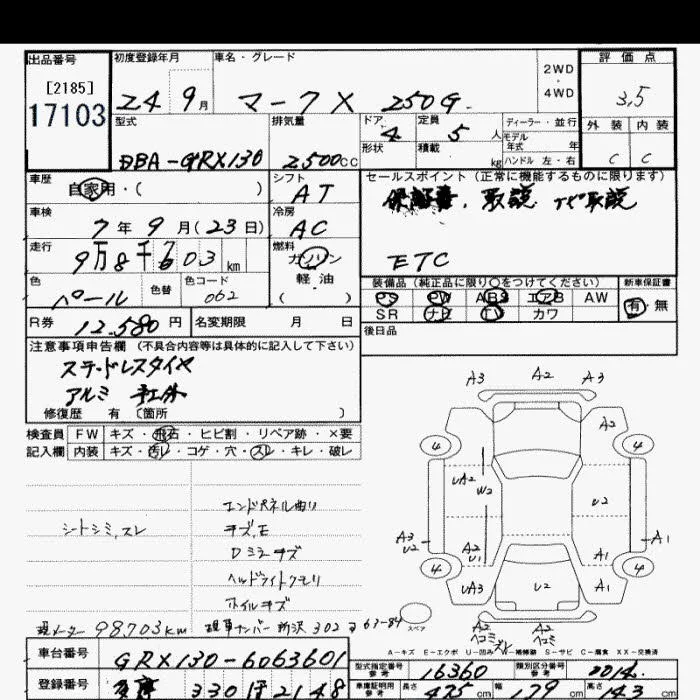 出品番号 初度登録年月 車名・グレード 2WD・4WD 評価点
[2185]
17103 24 9月 マークX 250G 3,5
型式 排気量 ドア 定員 ディーラー・並行 外装 内装
4 5人 モデル年式 年
DBA-GRX130 2500cc 形状 積載 kg ハンドル 左・右 C C
車歴 シフト セールスポイント(正常に機能するものに限ります)
自家用・( ) AT 保証書、取説 ナビ取説
車検 冷房
7年9月(23日) AC
走行 燃料
9万8千603km ガソリン ETC
色 色替 色コード 軽・油 装備品(純正品に限り〇をつけてください) 新車保証書
パール 062 ( ) PS PW ABS エアB AW 有・無
R券 12.580円 名変期限 月 日 SR ナビ TV カワ
注意事項申告欄(不具合内容等は具体的に記入して下さい) 後日品
スタッドレスタイヤ
アルミ 社外
修復歴 有 〔箇所 〕
検査員 FW キズ・飛石・ヒビ割・リペア跡・×要
記入欄 内装 キズ・汚レ・コゲ・穴・スレ・キレ・破レ
A3 A2 A3
A2
4 4
UA2 W2 U2
エンドパネル曲り
シートシミ,スレ キズ,E
Dミラーキズ
ヘッドライトクモリ
ホイルキズ
A3 U2 A2 U1 A1 A1
4 4
UA3 U2 A1
現メーター 98,703km 現車ナンバー 所沢 302 そ 63-84 スペア A2 ヘコミ スレ A2 ヘコミ
A=キズ E=エクボ U=凹み W=補修跡 S=サビ C=腐食 XX=交換済
車台番号 GRX130-6063601 型式指定番号 参考 16360 類別区分番号 参考 0014
登録番号 330 2148 車庫証明用 参考 長さ 475cm 幅 179cm 高さ 143cm